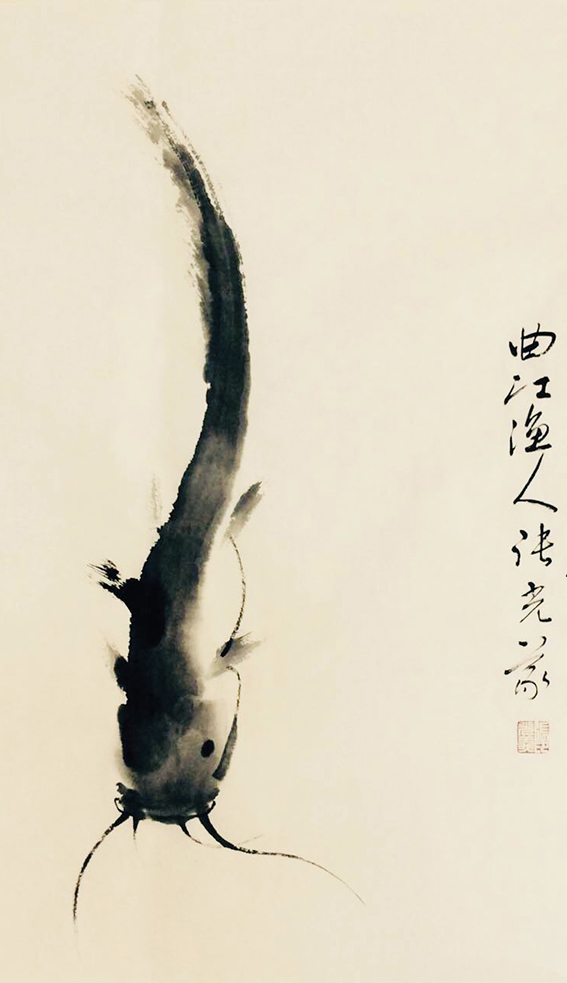 曲江渔人张光